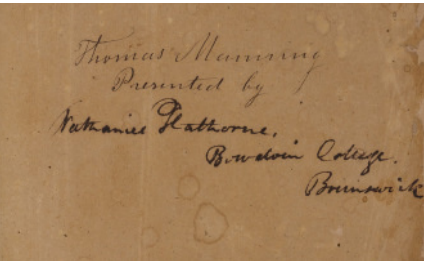 Thomas Manning
Presented by
Nathaniel Hathorne,
Bowdoin College.
Brunswick